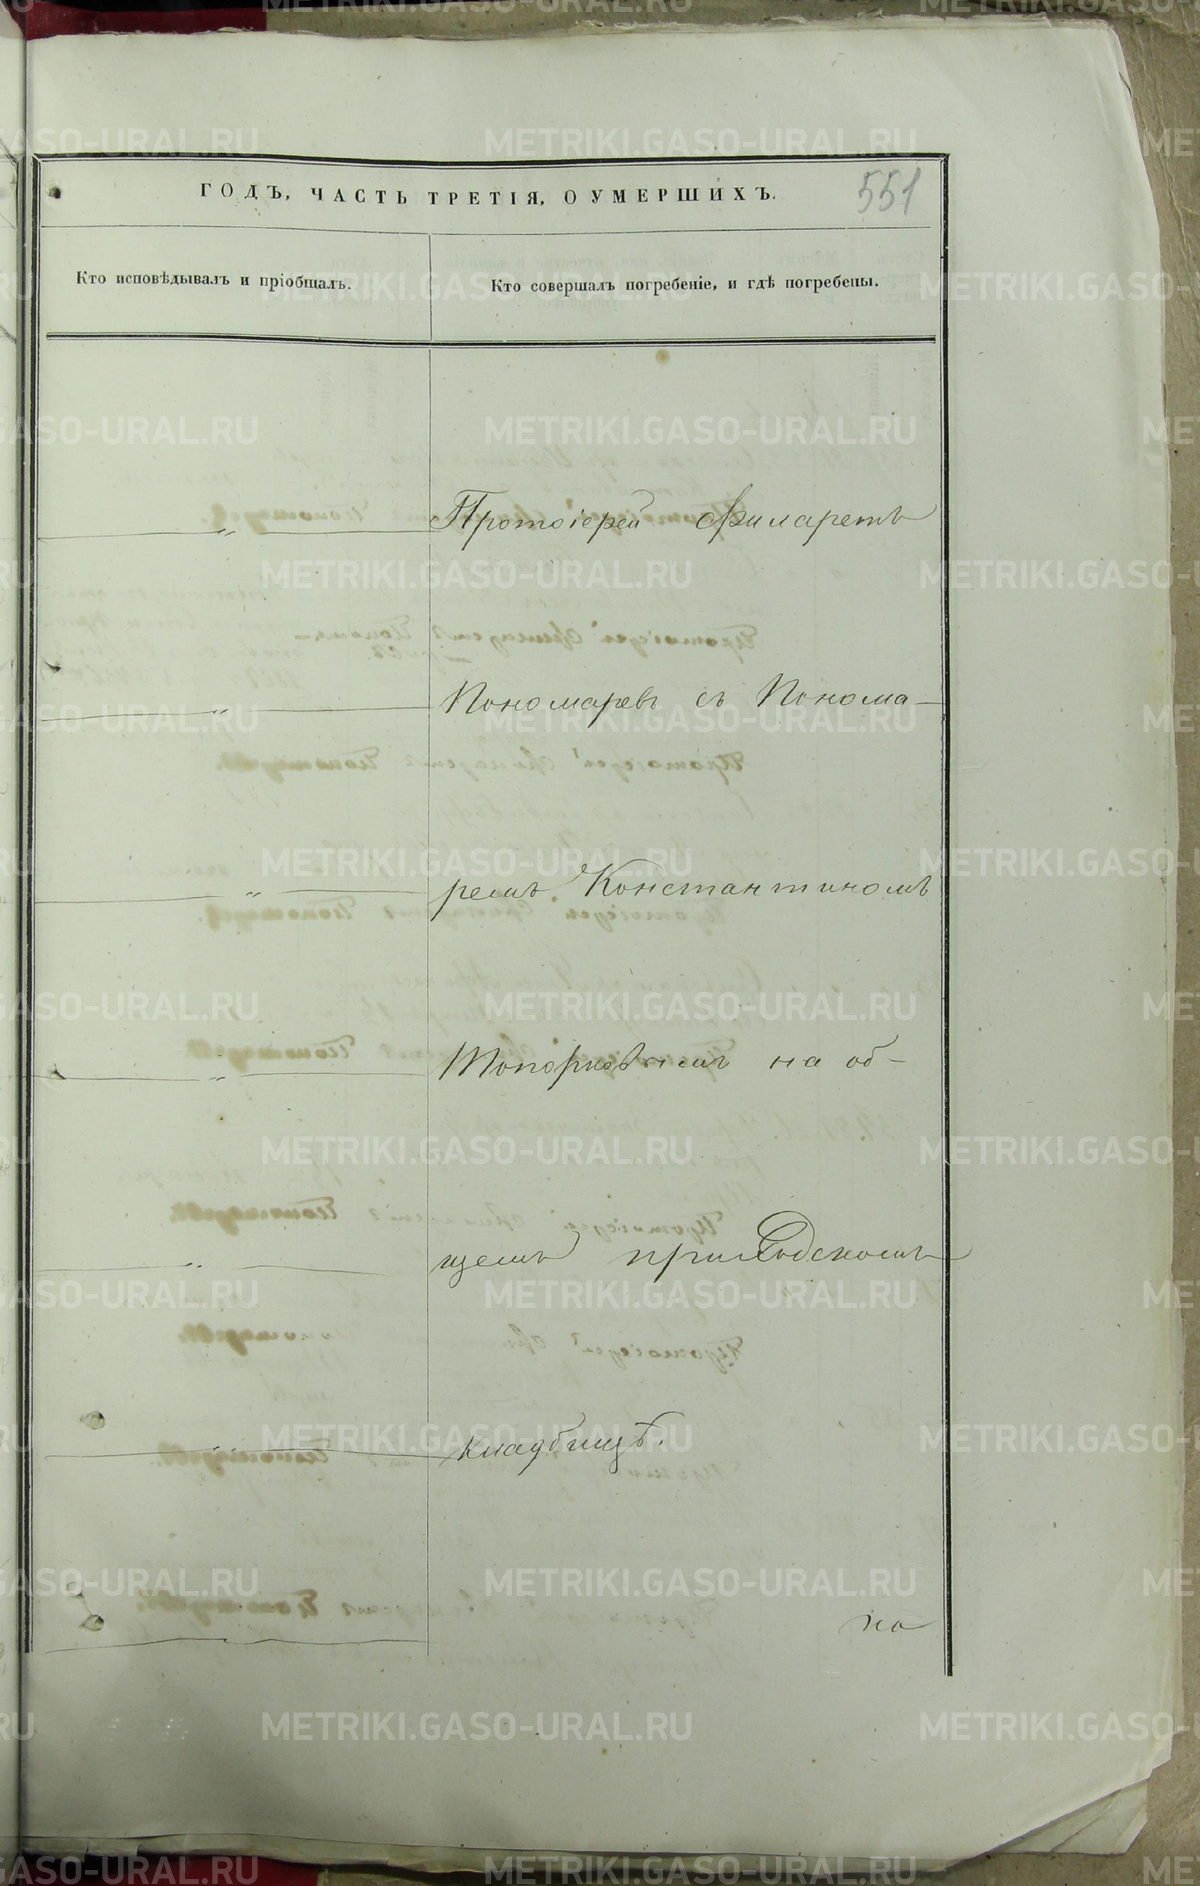 ГОДЪ, ЧАСТЬ ТРЕТІЯ, О УМЕРШИХЪ. 551
Кто исповѣдывалъ и пріобщалъ.
Кто совершалъ погребеніе, и гдѣ погребены.
Протоіерей Филаретъ
Пономаревъ съ Понома-
ремъ Константиномъ
Топорковымъ на об-
щемъ приходскомъ
кладбищѣ.
по
METRIKI.GASO-URAL.RU